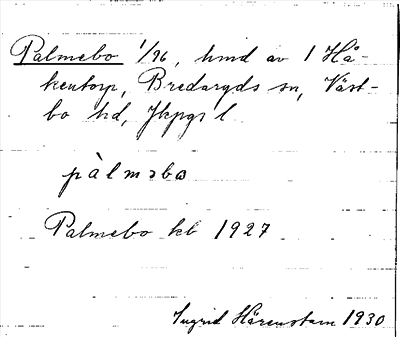 Palmebo 1/96, hmd av 1 Hå-
kentorp, Bredaryds sn, Väst-
bo hd, Jkpgs l
pàlməbω
Palmebo kb 1927
Ingrid Härenstam 1930